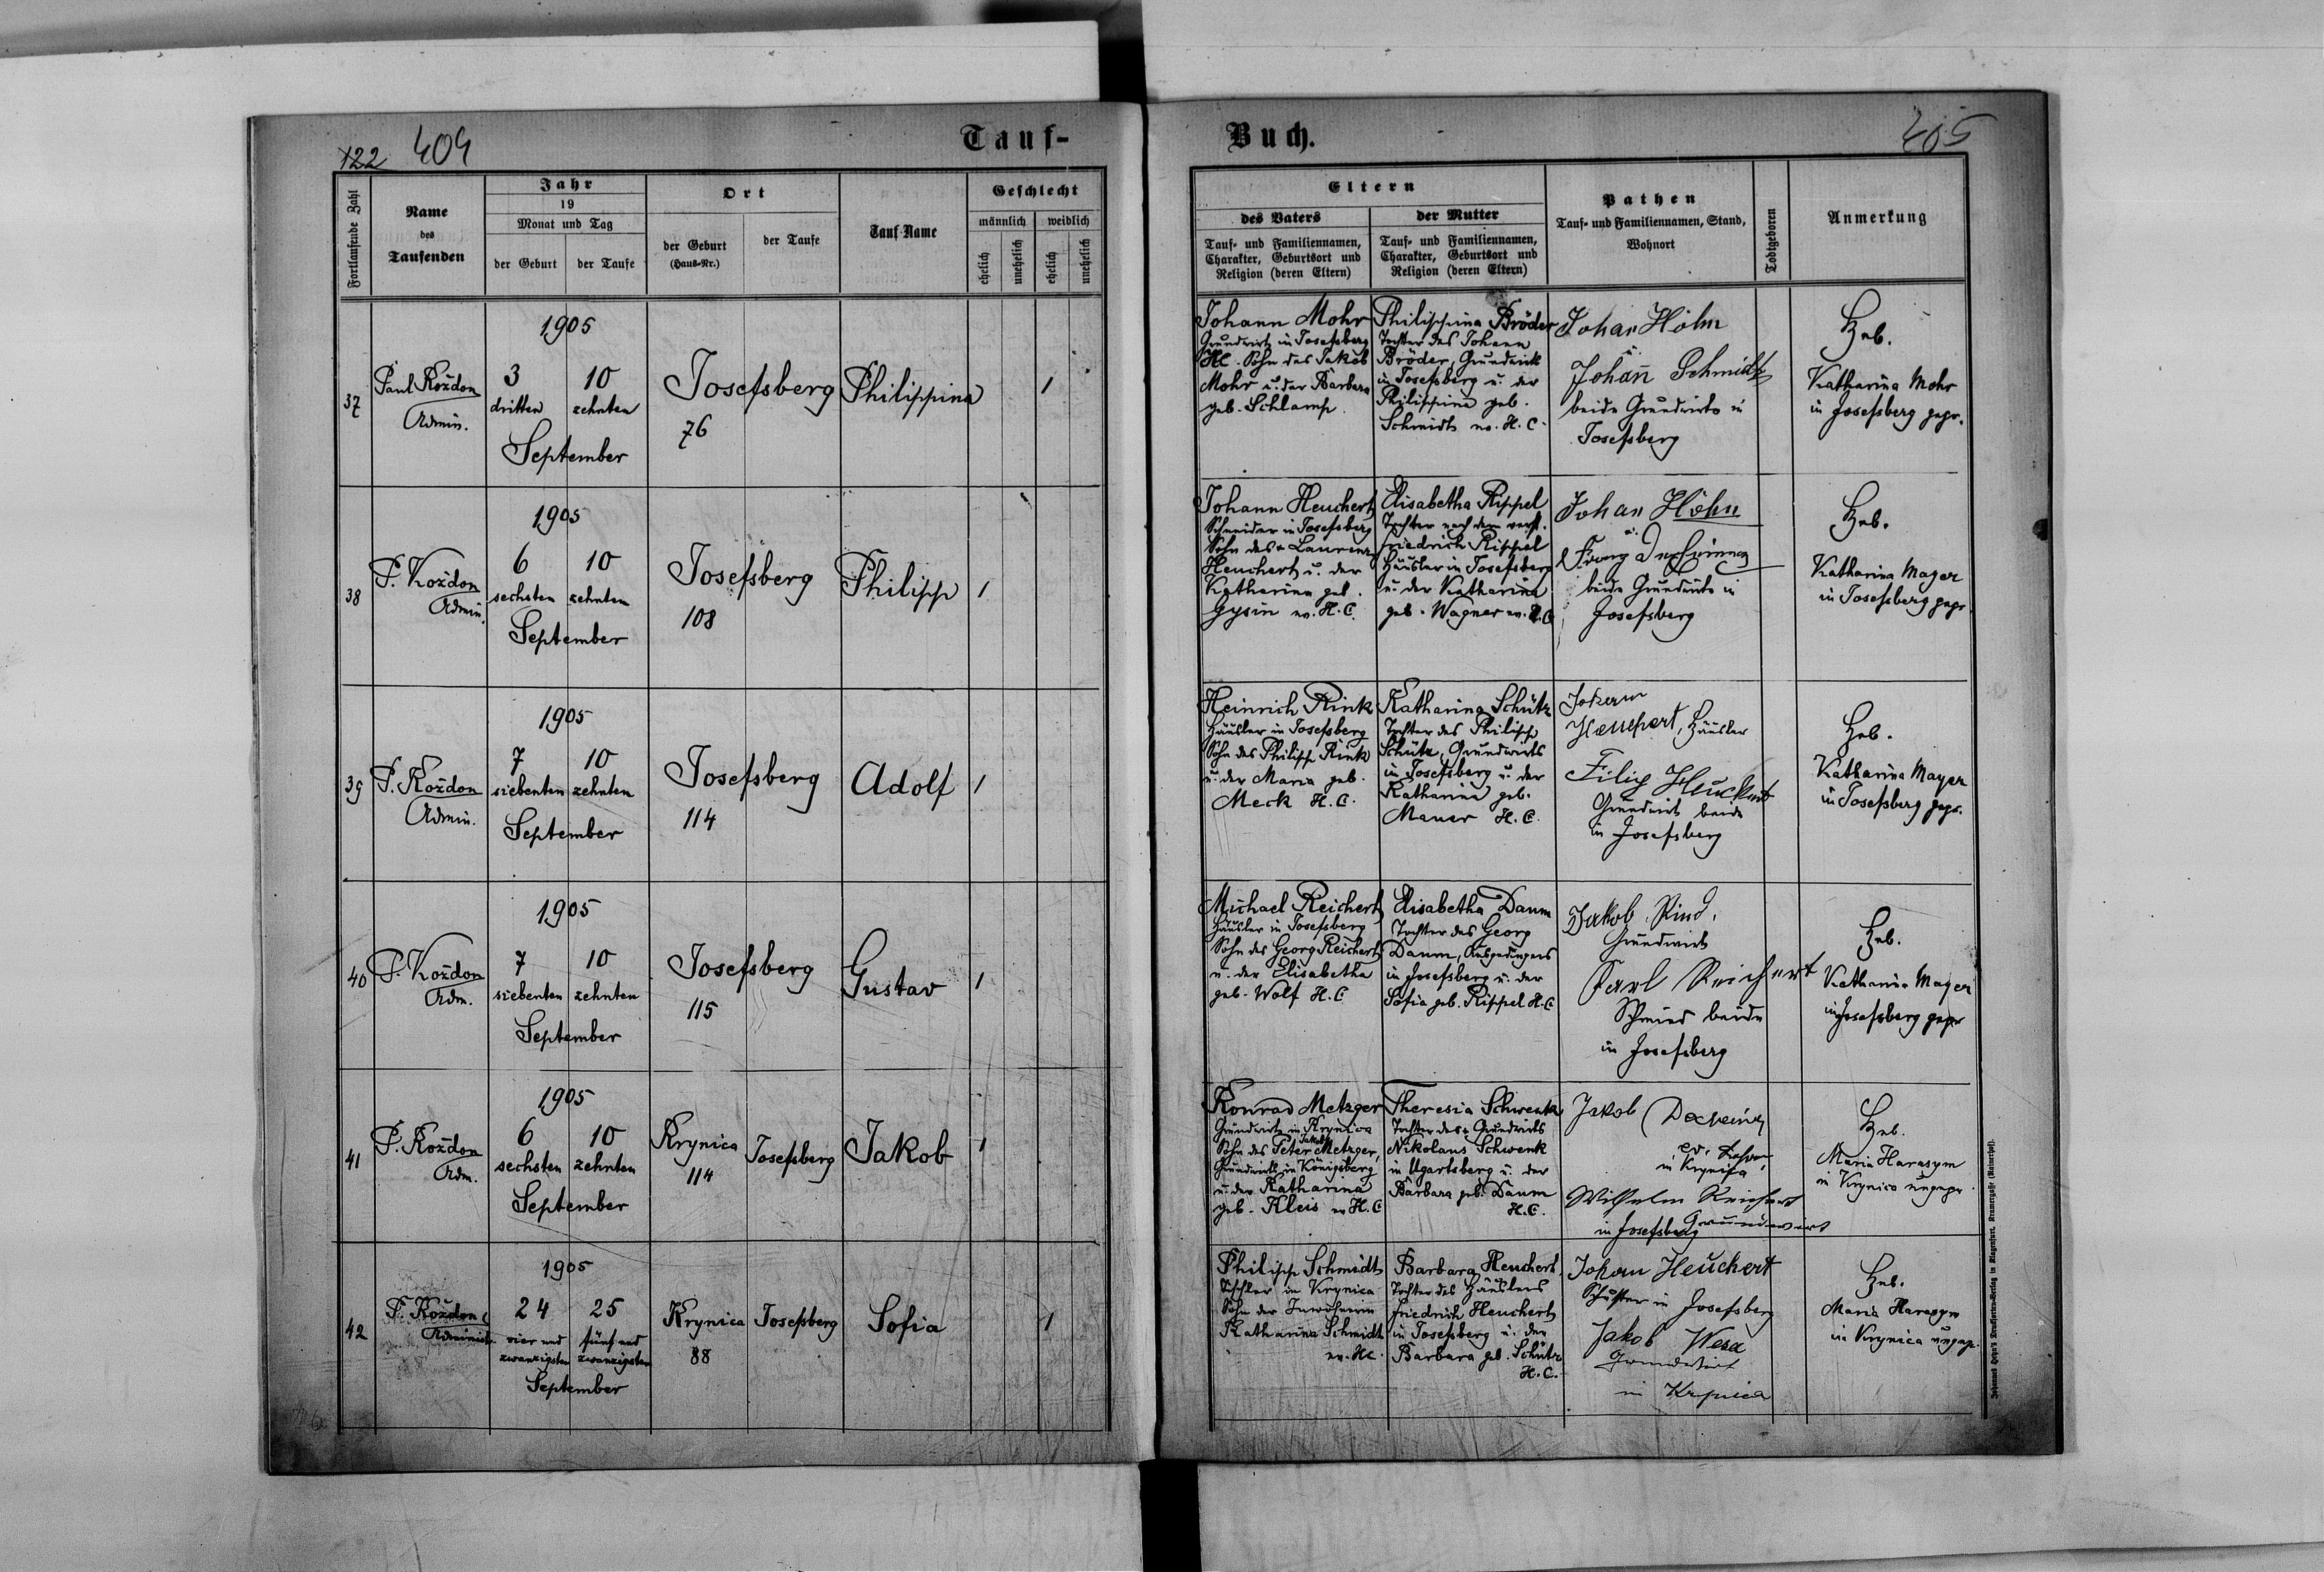 122 404
Tauf-
Fortlaufende Zahl
Name
des
Taufenden
Jahr
19
Monat und Tag
der Geburt
der Taufe
Ort
der Geburt
(Haus-Nr.)
der Taufe
Tauf-Name
Geschlecht
männlich
weiblich
ehelich
unehelich
ehelich
unehelich
37
Paul Kożdon
Admin.
1905
3 10
dritten zehnten
September
Josefsberg
76
Philippina
1
38
P. Kożdon
Admin.
1905
6 10
sechsten zehnten
September
Josefsberg
108
Philipp
1
39
P. Kożdon
Admin.
1905
7 10
siebenten zehnten
September
Josefsberg
114
Adolf
1
40
P. Kożdon
Adm.
1905
7 10
siebenten zehnten
September
Josefsberg
115
Gustav
1
41
P. Kożdon
Adm.
1905
6 10
sechsten zehnten
September
Krynica
114
Josefsberg
Jakob
1
42
P. Kożdon
1905
24 25
vier und fünf und
zwanzigsten zwanzigsten
September
Krynica
88
Josefsberg
Sofia
1
Buch.
405
Eltern
des Vaters
Tauf- und Familiennamen,
Charakter, Geburtsort und
Religion (deren Eltern)
der Mutter
Tauf- und Familiennamen,
Charakter, Geburtsort und
Religion (deren Eltern)
Pathen
Tauf- und Familiennamen, Stand,
Wohnort
Todtgeboren
Anmerkung
Johann Mohr
Grundwirt in Josefsberg
HC. Sohn des Jakob
Mohr u. der Barbara
geb. Schlamp.
Philippina Bröder
Tochter des Johann
Bröder, Grundwirts
in Josefsberg u. der
Philippina geb.
Schmidt ev. H. C.
Johan Höhn
u.
Johan Schmidt
beide Grundwirte in
Josefsberg
Heb.
Katharina Mohr
in Josefsberg gepr.
Johann Heuchert
Schneider in Josefsberg
Sohn des Laurenz
Heuchert u. der
Katharina geb.
Gysin ev. H. C.
Elisabetha Rippel
Tochter nach dem verst.
Friedrich Rippel
Häusler in Josefsberg
u. der Katharina
geb. Wagner ev. H. C.
Johan Höhn
u.
beide Grundwirte in
Josefsberg
Heb.
Katharina Mayer
in Josefsberg gepr.
Heinrich Rink
Häusler in Josefsberg
Sohn des Philipp Rink
u. der Maria geb.
Meck H. C.
Katharina Schütz
Tochter des Philipp
Schütz, Grundwirts
in Josefsberg u. der
Katharina geb.
Mauer H. C.
Häusler
Filip Heuchert
Grundwirt beide
in Josefsberg
Heb.
Katharina Mayer
in Josefsberg gepr.
Michael Reichert
Häusler in Josefsberg
Sohn des Georg Reichert
u. der Elisabetha
geb. Wolf H. C.
Elisabetha Daum
Tochter des Georg
Daum, Ausgedingers
in Josefsberg u. der
Sofia geb. Rippel H. C.
Jakob
Grundwirt
Karl Reichert
Schmied beide
in Josefsberg
Heb.
Katharina Mayer
in Josefsberg gepr
Konrad Metzger
Grundwirt in Krynica
Sohn des Peter Jakob Metzger,
Grundwirts in Königsberg
u. der Katharina
geb. Kleis ev H. C
Theresia Schwenk
Tochter des Grundwirts
Nikolaus Schwenk
in Ugartsberg u. der
Barbara geb. Daum
H. C.
Jakob
in Krynica
Wilhelm Reichert
in Josefsberg Grundwirt
Heb.
Maria Harasym
in Krynica ungepr.
Philipp Schmidt
Tischler in Krynica
Sohn der Inwohnerin
Katharina Schmidt
ev. HC.
Barbara Heuchert
Tochter des Häuslers
Friedrich Heuchert
in Josefsberg u. der
Barbara geb. Schütz
H. C.
Johan Heuchert
Schuster in Josefsberg
Jakob
Grundwirt
in Krynica
Heb.
Maria Harasym
in Krynica ungepr.